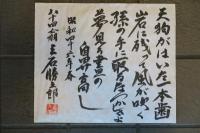 天狗がはいた一本歯
岩に残って風が吹く
孫の手に取る
夢見る雲の
自界高し
昭和四十三年春
八十四翁 三石勝五郎